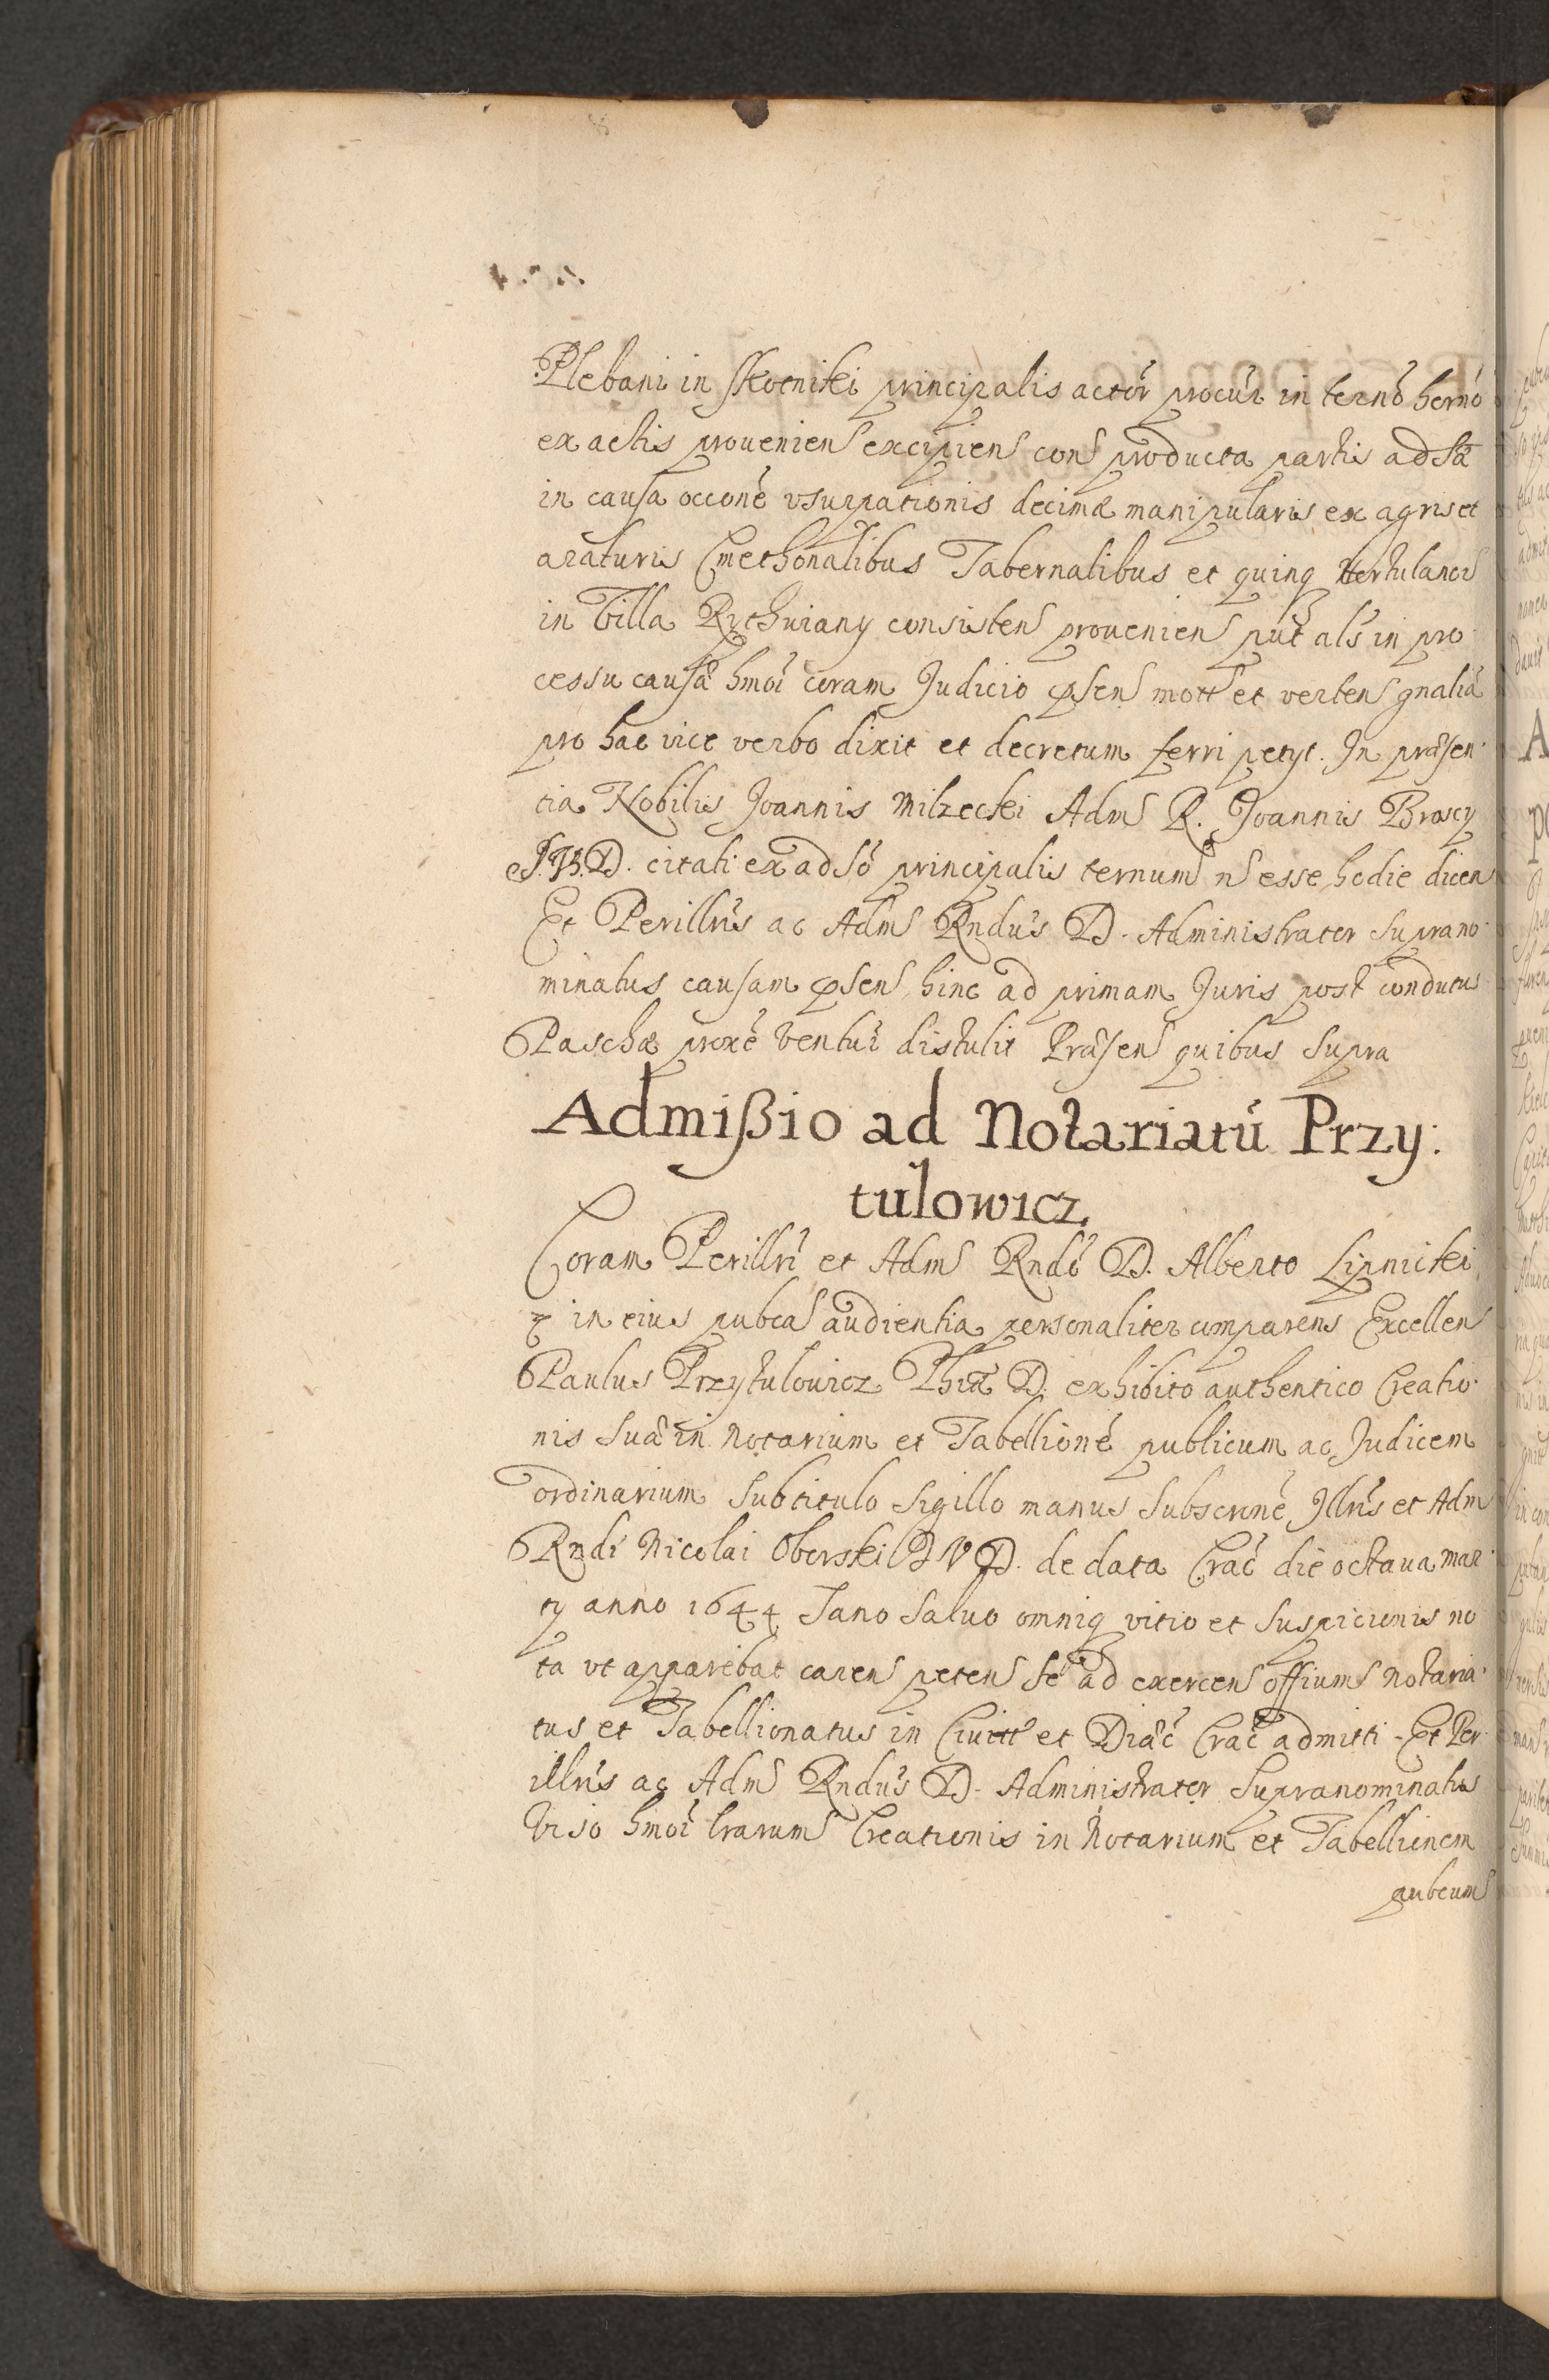 Plebani in Skotniki principalis actór procúr in termó herno
ex actis prouenien excipien con producta partis adsa
in causa occoné vsurpationis decimæ manipularis ex agris et
araturis Cmethonalibus Tabernalibus et quinq Hortulanor
in Villa Rythwiany consisten prouenien put als in pro
cessu causæ hmoi coram Judicio psen mott et verten gnalia
pro hac vice verbo dixit et decretum ferri petyt. In præsen
tia Nobilis Joannis Milzecki Adm R. Joannis Broscy
S.Th.D. citati ex adso principalis ternum n esse hodie dicen
Et Perillris ac Adm Rndus D. Administrator Suprano
minatus causam psen hinc ad primam Juris post conductus
Paschæ proxé ventui distulit Præsen quibus Supra
Admißio ad Notariatú Przy:
tulowicz
Coram Perillri et Adm Rndo D. Alberto Lipnicki
in eius pubca audientia personaliter comparens Excellen
Paulus Przytulowicz Phiæ D. exhibito authentico Creatio
nis Suæ in Notarium et Tabellioné publicum ac Judicem
ordinarium Subtitulo Sigillo manus Subscrioné Jllris et Adm
Rndi Nicolai Oborski JVD. de data Crac die octaua mar
ty anno 1644 Sano Saluo omniq vitio et Suspicionis no
ta vt apparebat caren peten Se ad exercen offium Notaria
tus et Tabellionatus in Ciuitt et Diæc Crac admitti. Et Per
illris ac Adm Rndus D. Administrator Supranominatus
Viso hmoi lrarum Creationis in Notarium et Tabellionem
pubcum